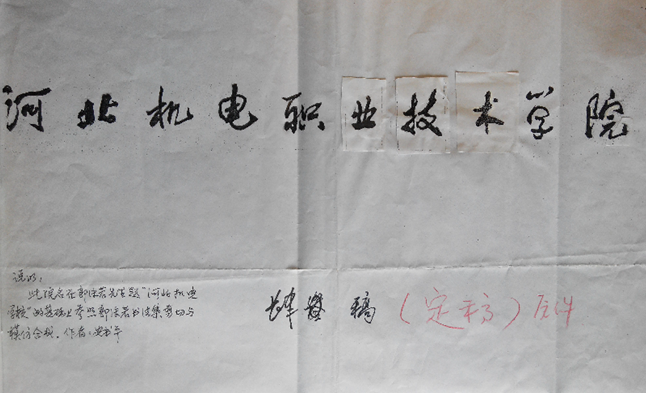 河北机电职业技术学院
说明：
此院名在郭沫若先生题“河北机电
学校”的基础上参照郭沫若书法集剪切与
模仿合成。作者：
稿（定稿）原件